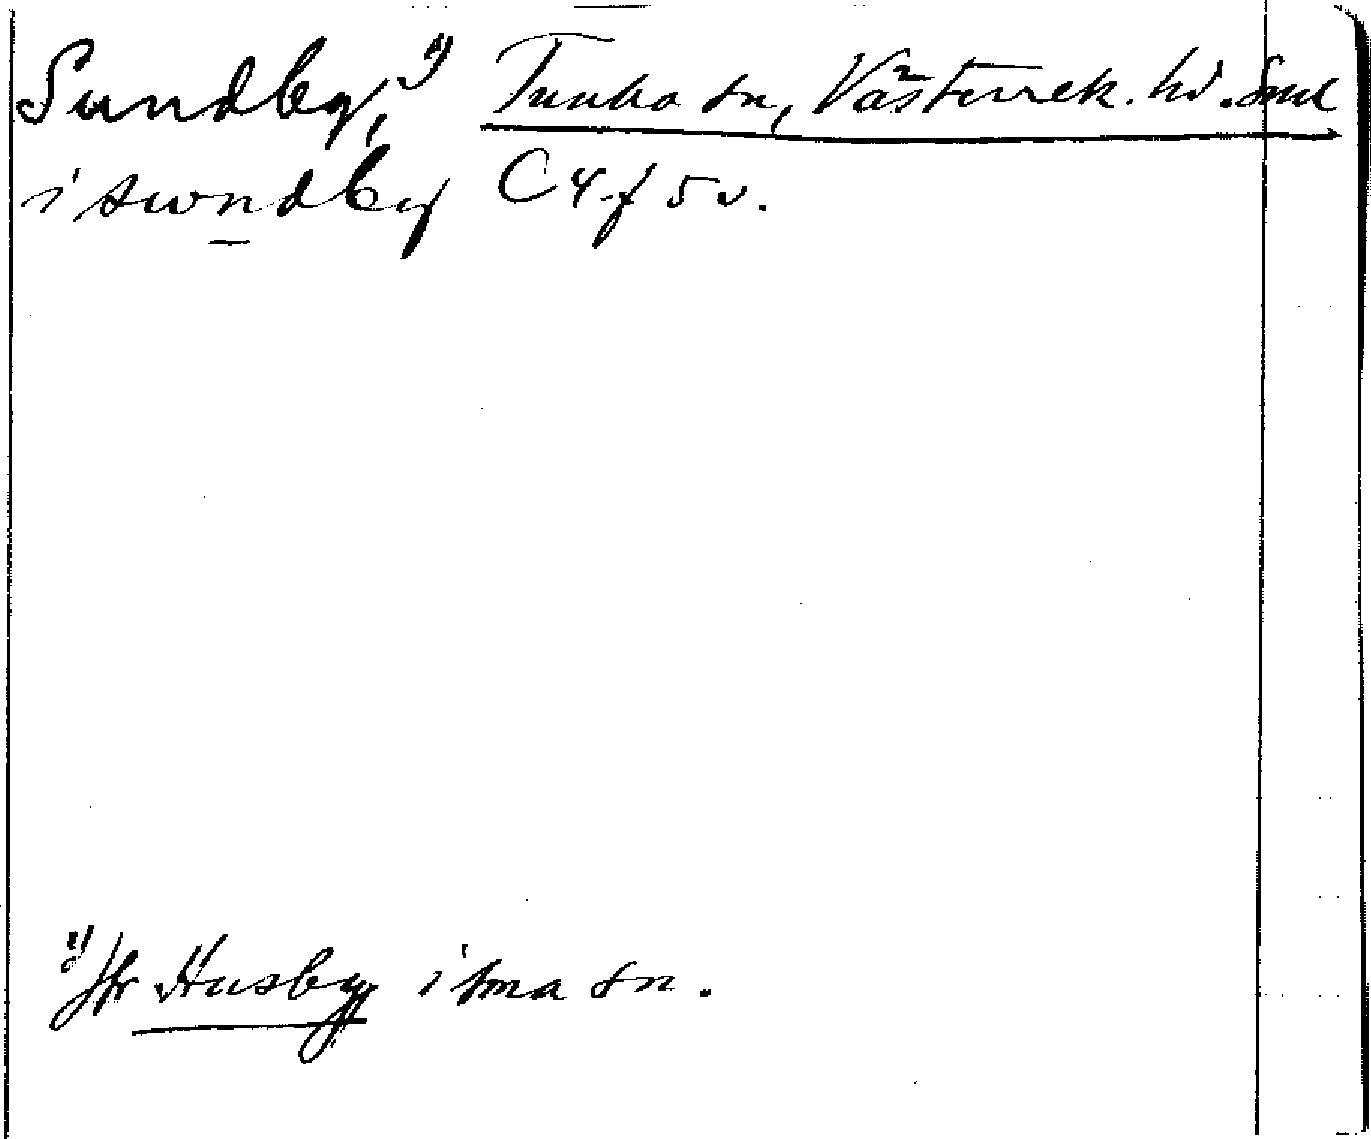 Sundby,¹⁾ Tumbo sn, Västerrek. hd. Sml
i swndby C 4 f 5 v.
¹⁾ Jfr Husby i sma sn.